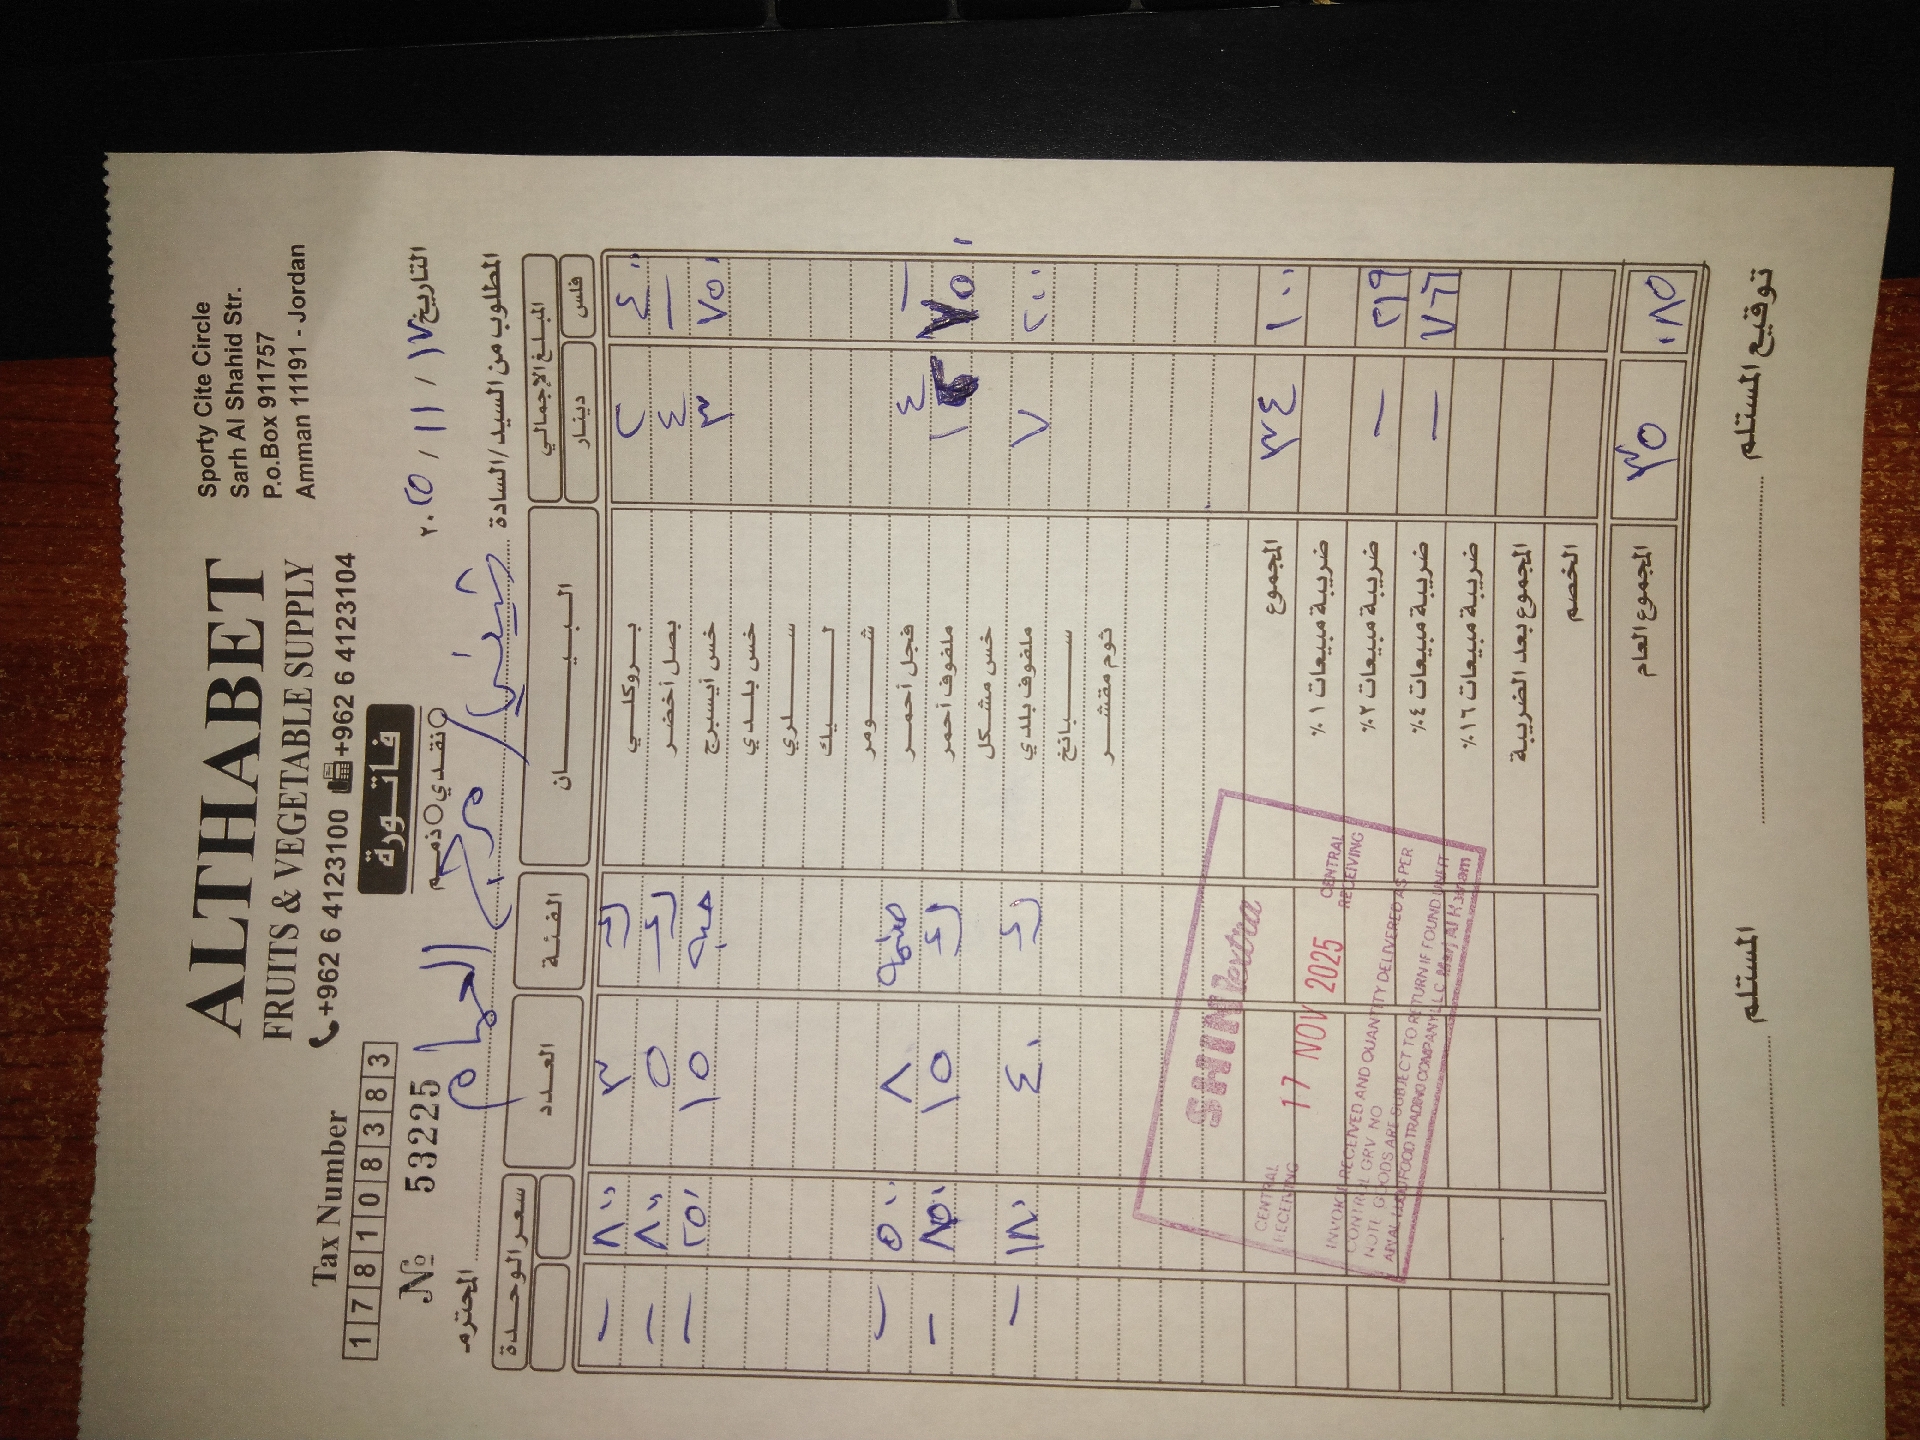 ALTHABET
FRUITS & VEGETABLE SUPPLY
+962 6 4123100 +962 6 4123104
Sporty Cite Circle
Sarh Al Shahid Str.
P.o.Box 911757
Amman 11191 - Jordan
Tax Number
1 7 8 1 0 8 3 8 3
№ 53225
فاتورة
نقدي ذمم
التاريخ ١٧ / ١١ / ٢٠٢٥
المطلوب من السيد/السادة
مرج الحمام
المحترم
المبلغ الإجمالي البيان الفئة العدد سعر الوحدة
فلس دينار
٤٠٠ ٢ بروكلي ك ٣ ٨٠٠ —
— ٤ بصل أخضر ك ٥ ٨٠٠ —
٧٥٠ ٣ خس أيسبرج حبه ١٥ ٢٥٠ —
خس بلدي
سلري
ليك
شومر
— ٤ فجل أحمر ٨ ٥٠٠ —
٧٥٠ ١٢ ملفوف أحمر ك ١٥ ٨٥٠ —
خس مشكل
٢٠٠ ٧ ملفوف بلدي ك ٤٠ ١٨٠ —
سبانخ
ثوم مقشر
١٠٠ ٣٤ المجموع
ضريبة مبيعات ١%
٢١٩ — ضريبة مبيعات ٢%
٧٦٦ — ضريبة مبيعات ٤%
ضريبة مبيعات ١٦%
المجموع بعد الضريبة
الخصم
٠٨٥ ٣٥ المجموع العام
SHINI extra
CENTRAL RECEIVING
17 NOV 2025
CENTRAL RECEIVING
INVOICE RECEIVED AND QUANTITY DELIVERED AS PER
CONTROL GRV NO
NOTE GOODS ARE SUBJECT TO RETURN IF FOUND UNFIT
FOOD TRADING COMPANY LLC Marj Al Hamam
المستلم
توقيع المستلم